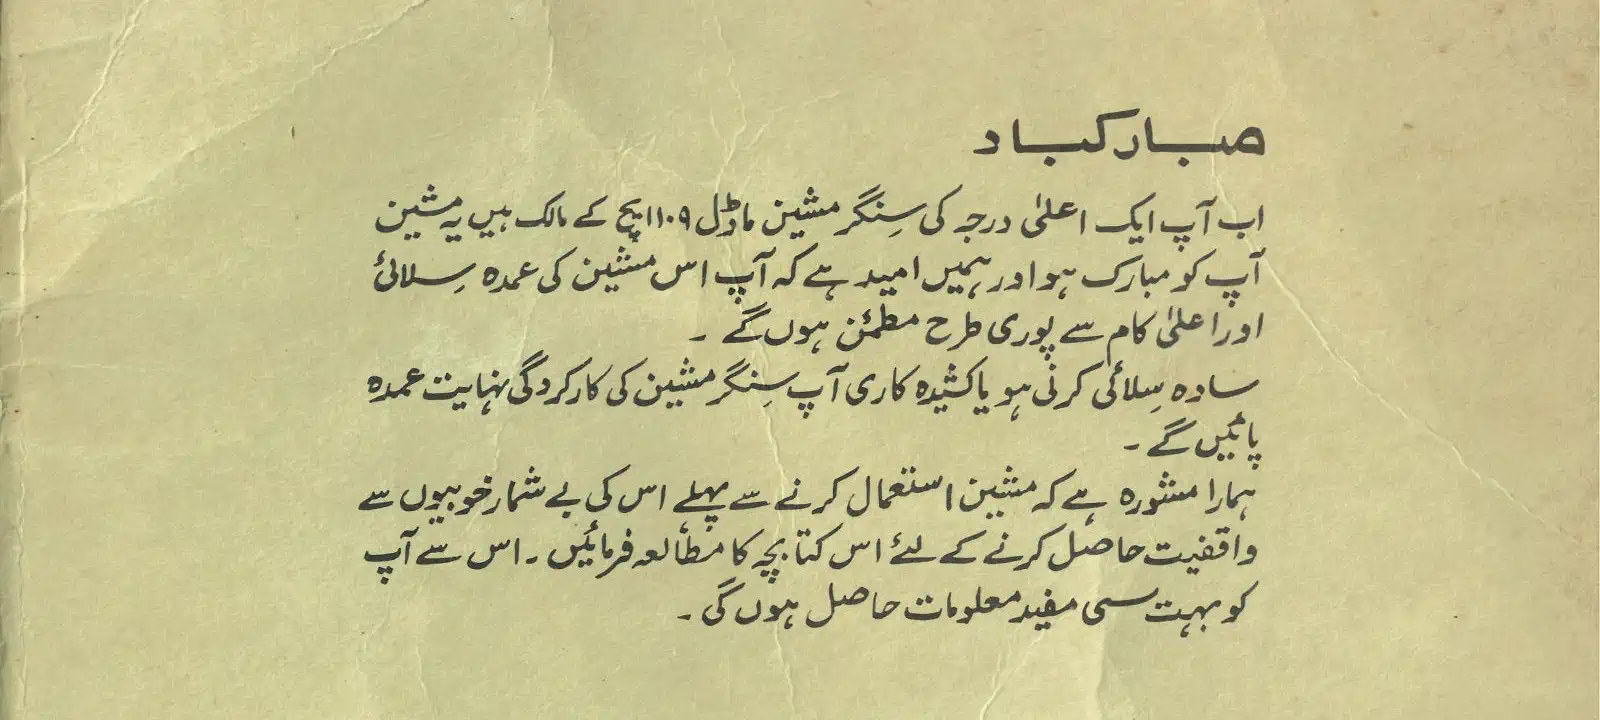 مبارکباد
اب آپ ایک اعلیٰ درجہ کی سِنگر مشین ماڈل ۱۱۰۹ ایچ کے مالک ہیں یہ مشین
آپ کو مبارک ہو اور ہمیں امید ہے کہ آپ اس مشین کی عمدہ سِلائی
اور اعلیٰ کام سے پوری طرح مطمئن ہوں گے ۔
سادہ سِلائی کرنی ہو یا کشیدہ کاری آپ سِنگر مشین کی کارکردگی نہایت عمدہ
پائیں گے ۔
ہمارا مشورہ ہے کہ مشین استعمال کرنے سے پہلے اس کی بے شمار خوبیوں سے
واقفیت حاصل کرنے کے لئے اس کتابچہ کا مطالعہ فرمائیں ۔ اس سے آپ
کو بہت سی مفید معلومات حاصل ہوں گی ۔